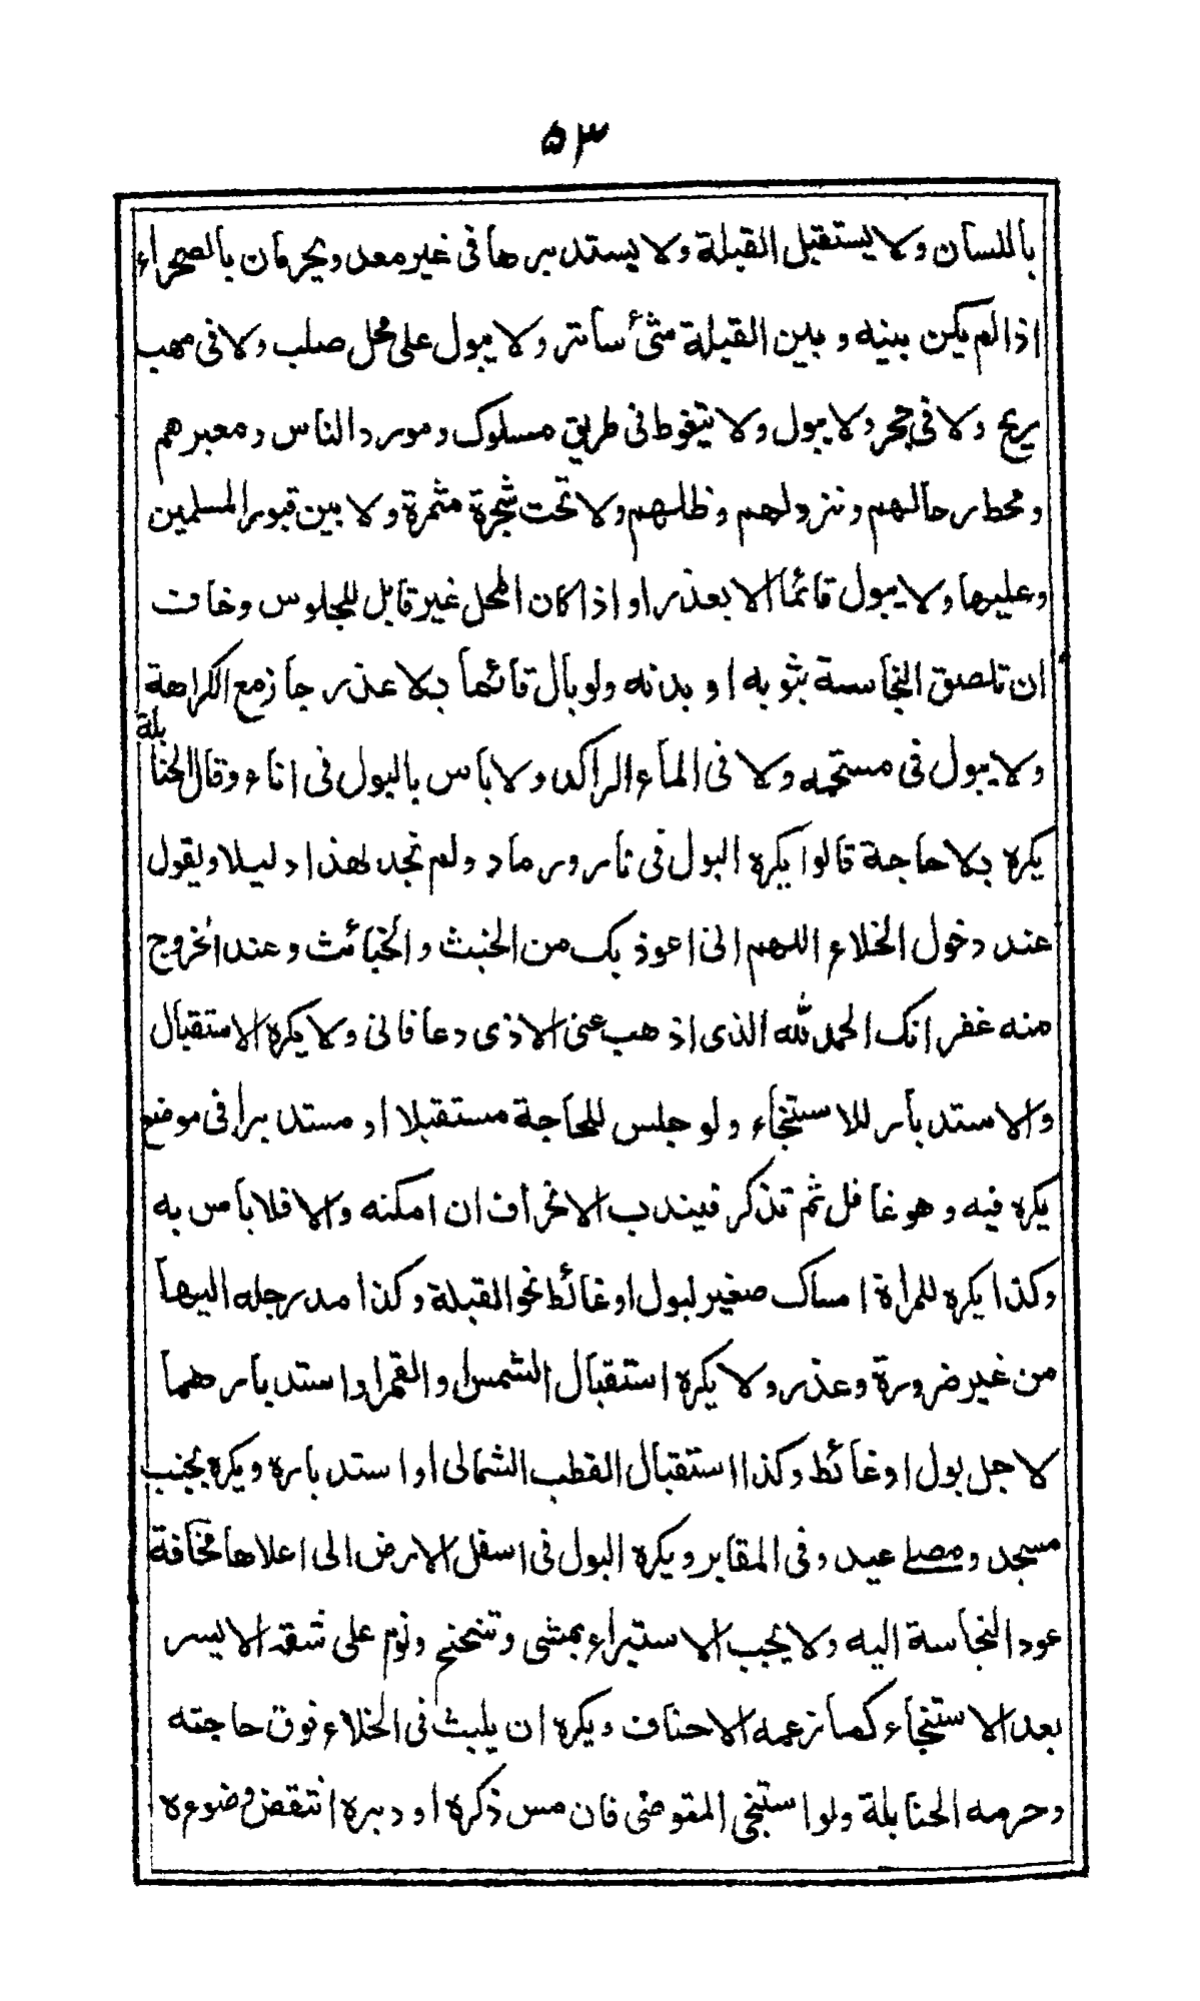 ٥٣
باللسان ولا يستقبل القبلة ولا يستدبرها فى غير معد ويحرمان بالصحراء
اذا لم يكن بينه وبين القبلة شئ ساتر ولا يبول على محل صلب ولا فى مهب
ريح ولا فى جحر ولا يبول ولا يتغوط فى طريق مسلوك ومورد الناس ومعبرهم
ومحط رحالهم ونزولهم وظلهم ولا تحت شجرة مثمرة ولا بين قبور المسلمين
وعليها ولا يبول قائما الا بعذر او اذا كان المحل غير قابل للجلوس وخاف
ان تلصق النجاسة بثوبه او بدنه ولو بال قائما بلا عذر جاز مع الكراهة
ولا يبول فى مستحمه ولا فى الماء الراكد ولا باس بالبول فى اناء وقال الحنابلة
يكره بلا حاجة قالوا يكره البول فى نار ورماد ولم نجد لهذا دليلا ويقول
عند دخول الخلاء اللهم انى اعوذ بك من الخبث والخبائث وعند الخروج
منه غفرانك الحمد لله الذى اذهب عنى الاذى وعافانى ولا يكره الاستقبال
والاستدبار للاستنجاء ولو جلس للحاجة مستقبلا او مستدبرا فى موضع
يكره فيه وهو غافل ثم تذكر فيندب الانحراف ان امكنه والا فلا باس به
وكذا يكره للمرأة امساك صغير لبول او غائط نحو القبلة وكذا مد رجله اليها
من غير ضرورة وعذر ولا يكره استقبال الشمس والقمر او استدبارهما
لاجل بول او غائط وكذا استقبال القطب الشمالى او استدباره ويكره بجنب
مسجد ومصلے عيد وفى المقابر ويكره البول فى اسفل الارض الى اعلاها مخافة
عود النجاسة اليه ولا يجب الاستبراء بمشى وتنحنح ونوم على شقه الايسر
بعد الاستنجاء كما زعمه الاحناف ويكره ان يلبث فى الخلاء فوق حاجته
وحرمه الحنابلة ولو استنجى المتوضى فان مس ذكره او دبره انتقض وضوءه